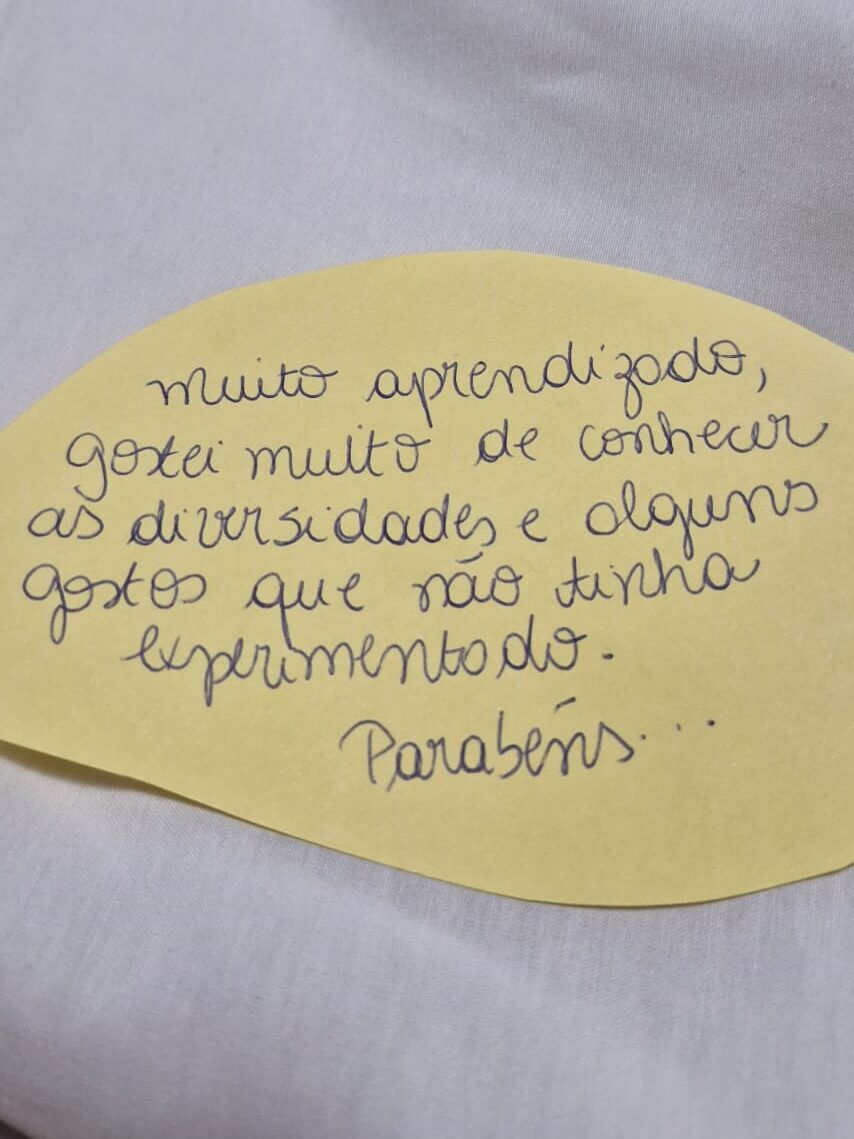 muito aprendizado,
gostei muito de conhecer
as diversidades e alguns
gostos que não tinha
experimentado.
Parabéns...